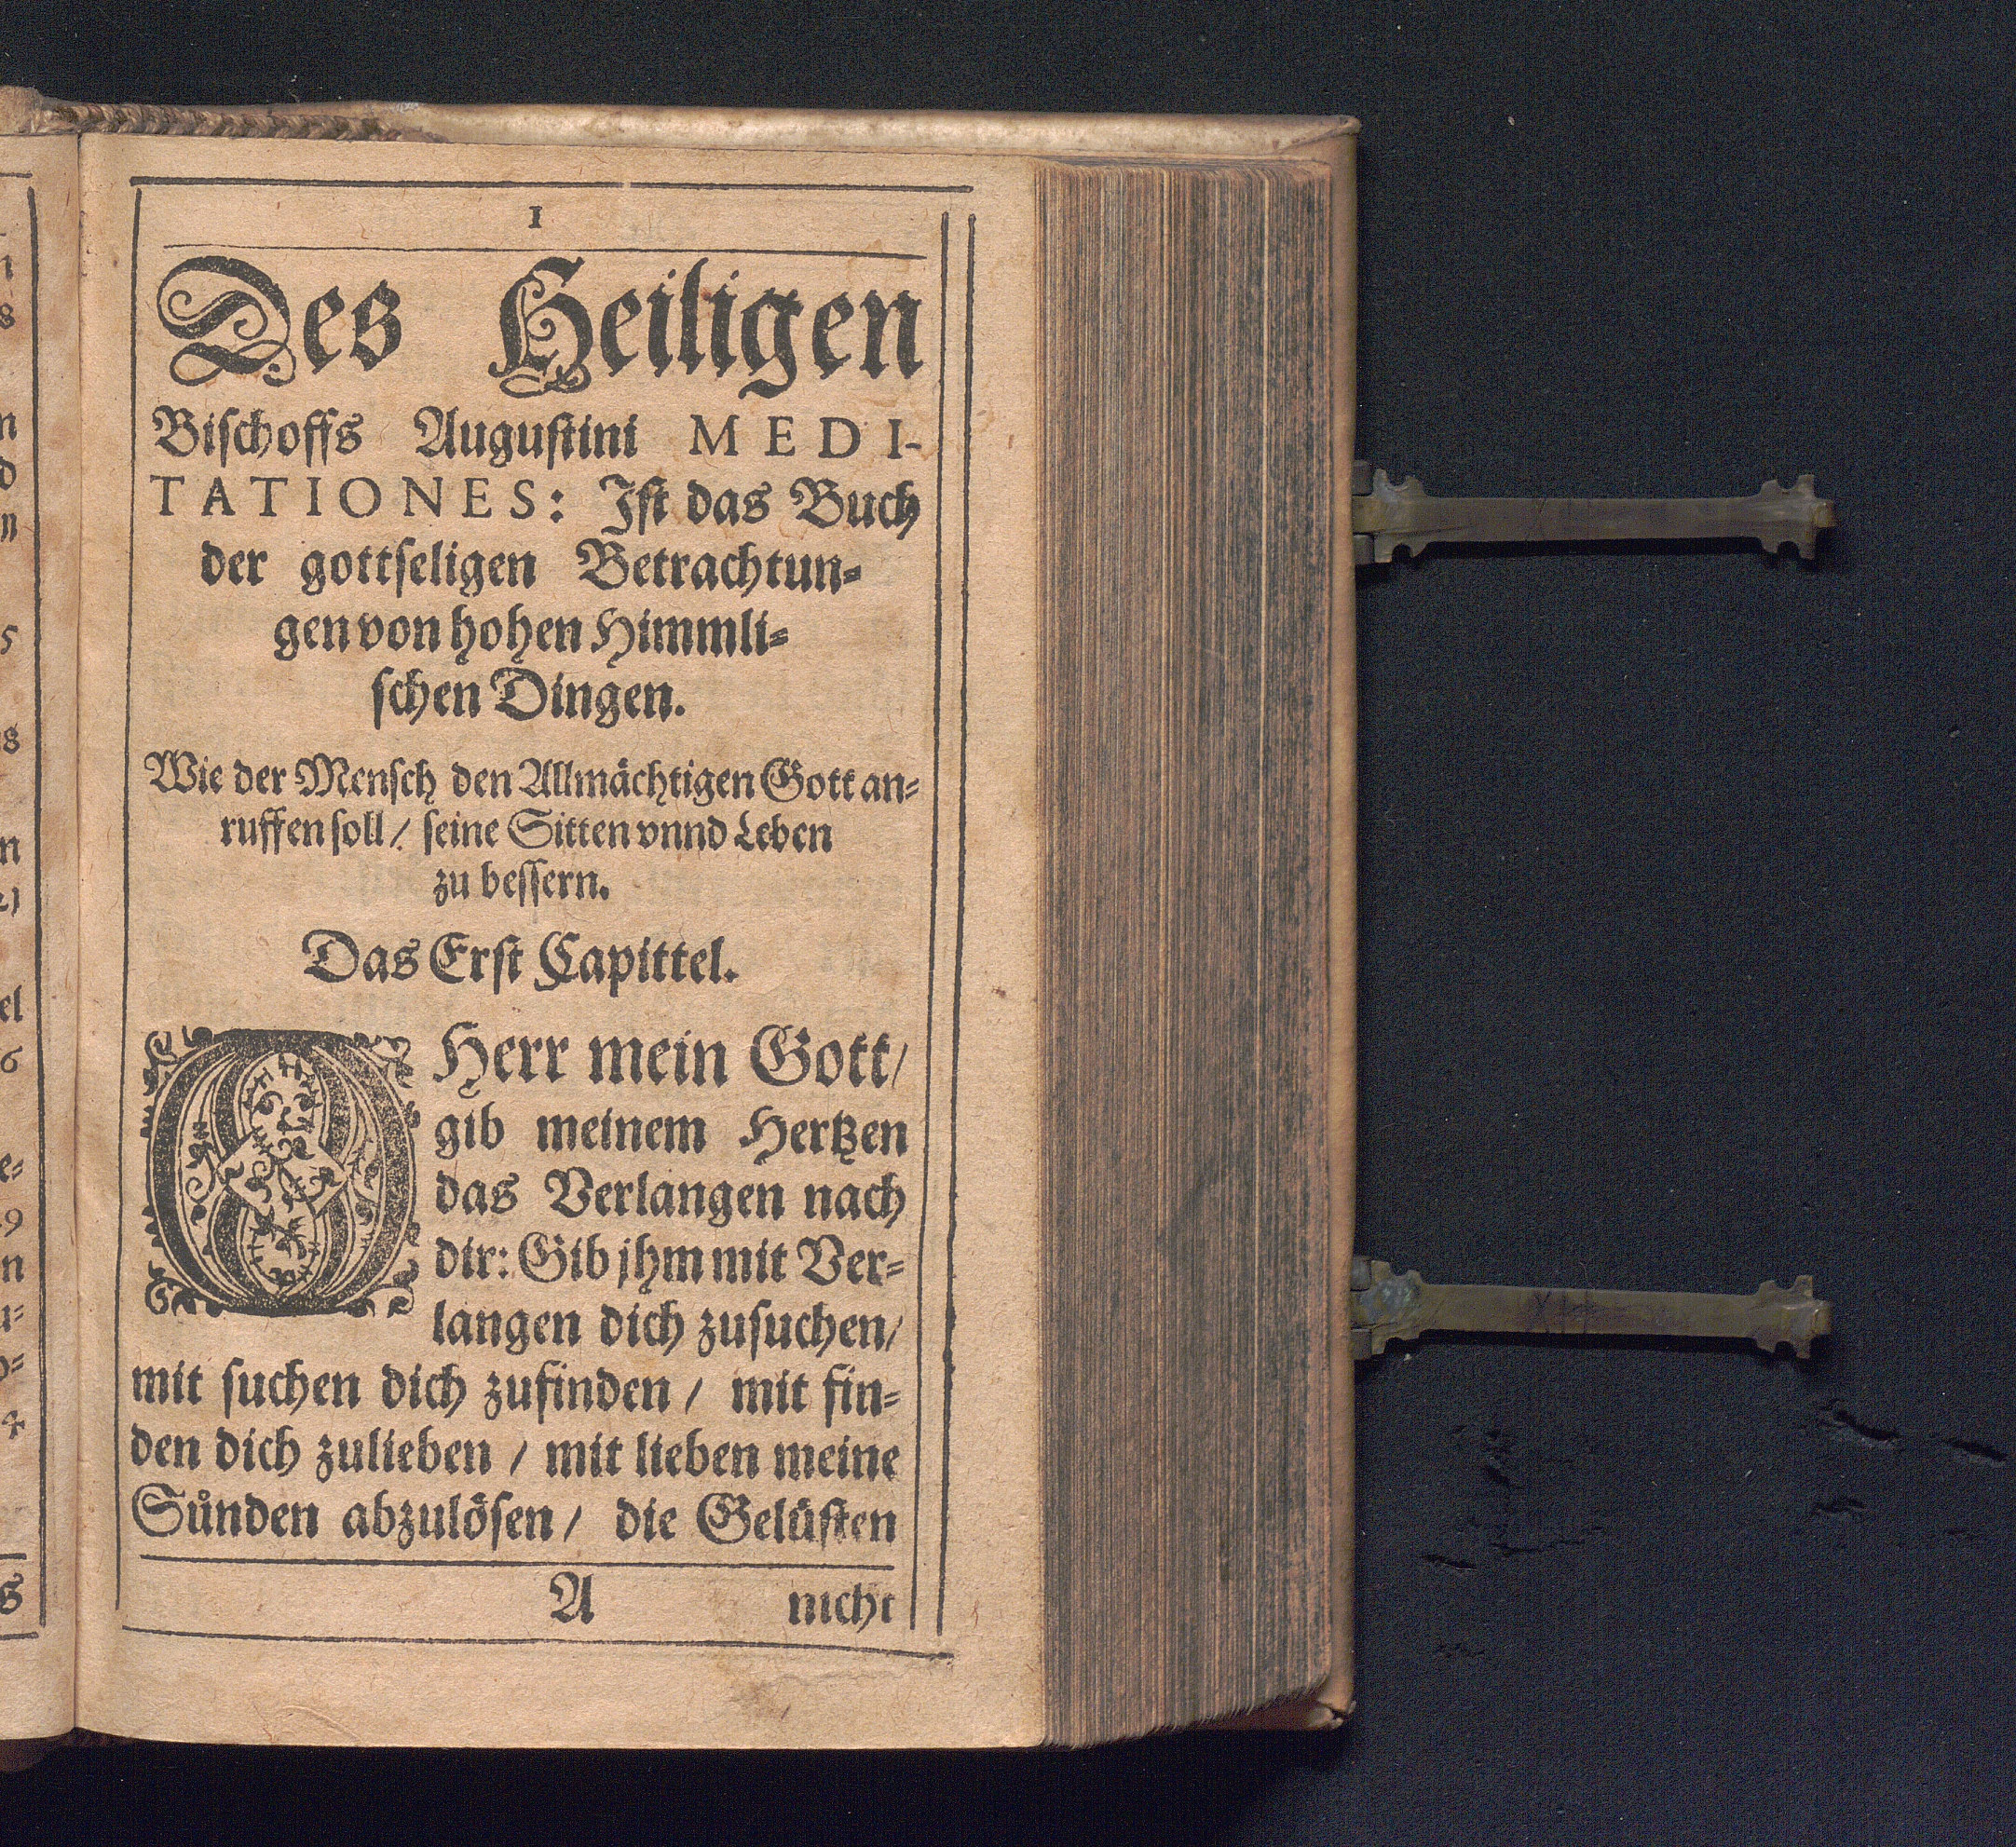 1
Des Heiligen
Biſchoffs Auguſtini MEDI-
TATIONES: Iſt das Buch
der gottſeligen Betrachtun-
gen von hohen Himmli-
ſchen Dingen.
Wie der Menſch den Allmächtigen Gott an-
ruffen ſoll / ſeine Sitten vnnd Leben
zu beſſern.
Das Erſt Capittel.
O Herr mein Gott/
gib meinem Hertzen
das Verlangen nach
dir: Gib jhm mit Ver-
langen dich zuſuchen/
mit ſuchen dich zufinden / mit fin-
den dich zulieben / mit lieben meine
Sůnden abzulöſen / die Gelüſten
A nicht